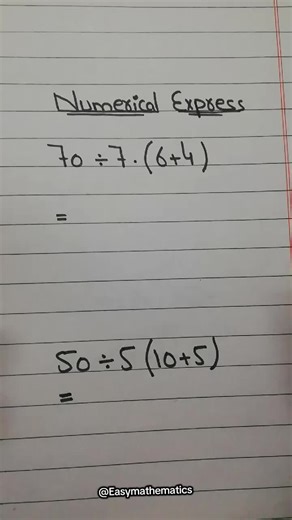 Numerical Express
70 ÷ 7 · (6+4)
=
50 ÷ 5 (10+5)
=
@Easymathematics